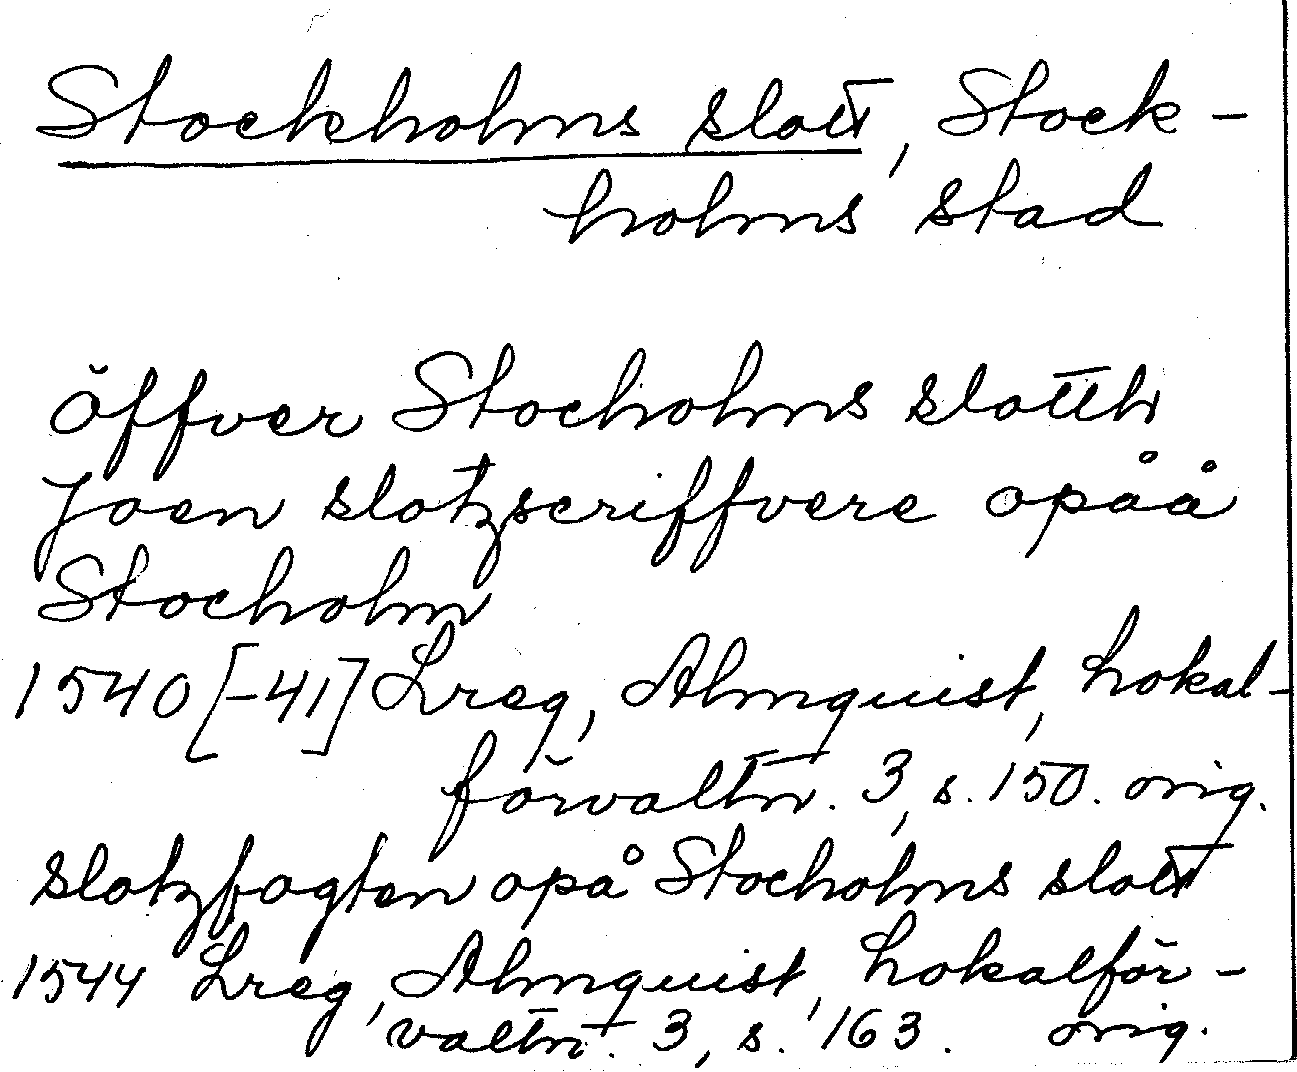 Stockholms slott, Stock-
holms stad
öffver Stocholms slotth
Joen slotzscriffvere opåå
Stocholm
1540 [-41] Lreg, Almquist, Lokal-
förvaltn. 3, s. 150. orig.
slotzfogten opå Stocholms slott
1544 Lreg, Almquist, Lokalför-
valtn. 3, s. 163. orig.